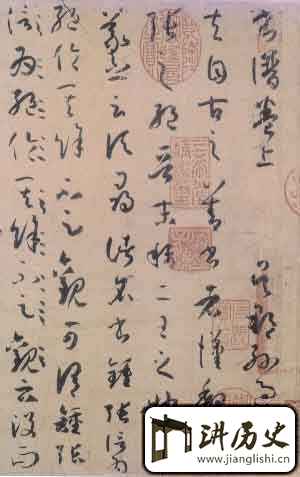 書譜卷上 吳郡孫過
夫自古之善書者漢魏
張之絕晉末稱二王之妙
羲之云頃尋諸名書鍾張信為
絕倫其餘不足觀可謂鍾張
信為絕倫其餘不足觀云沒而
讲历史
www.jianglishi.cn